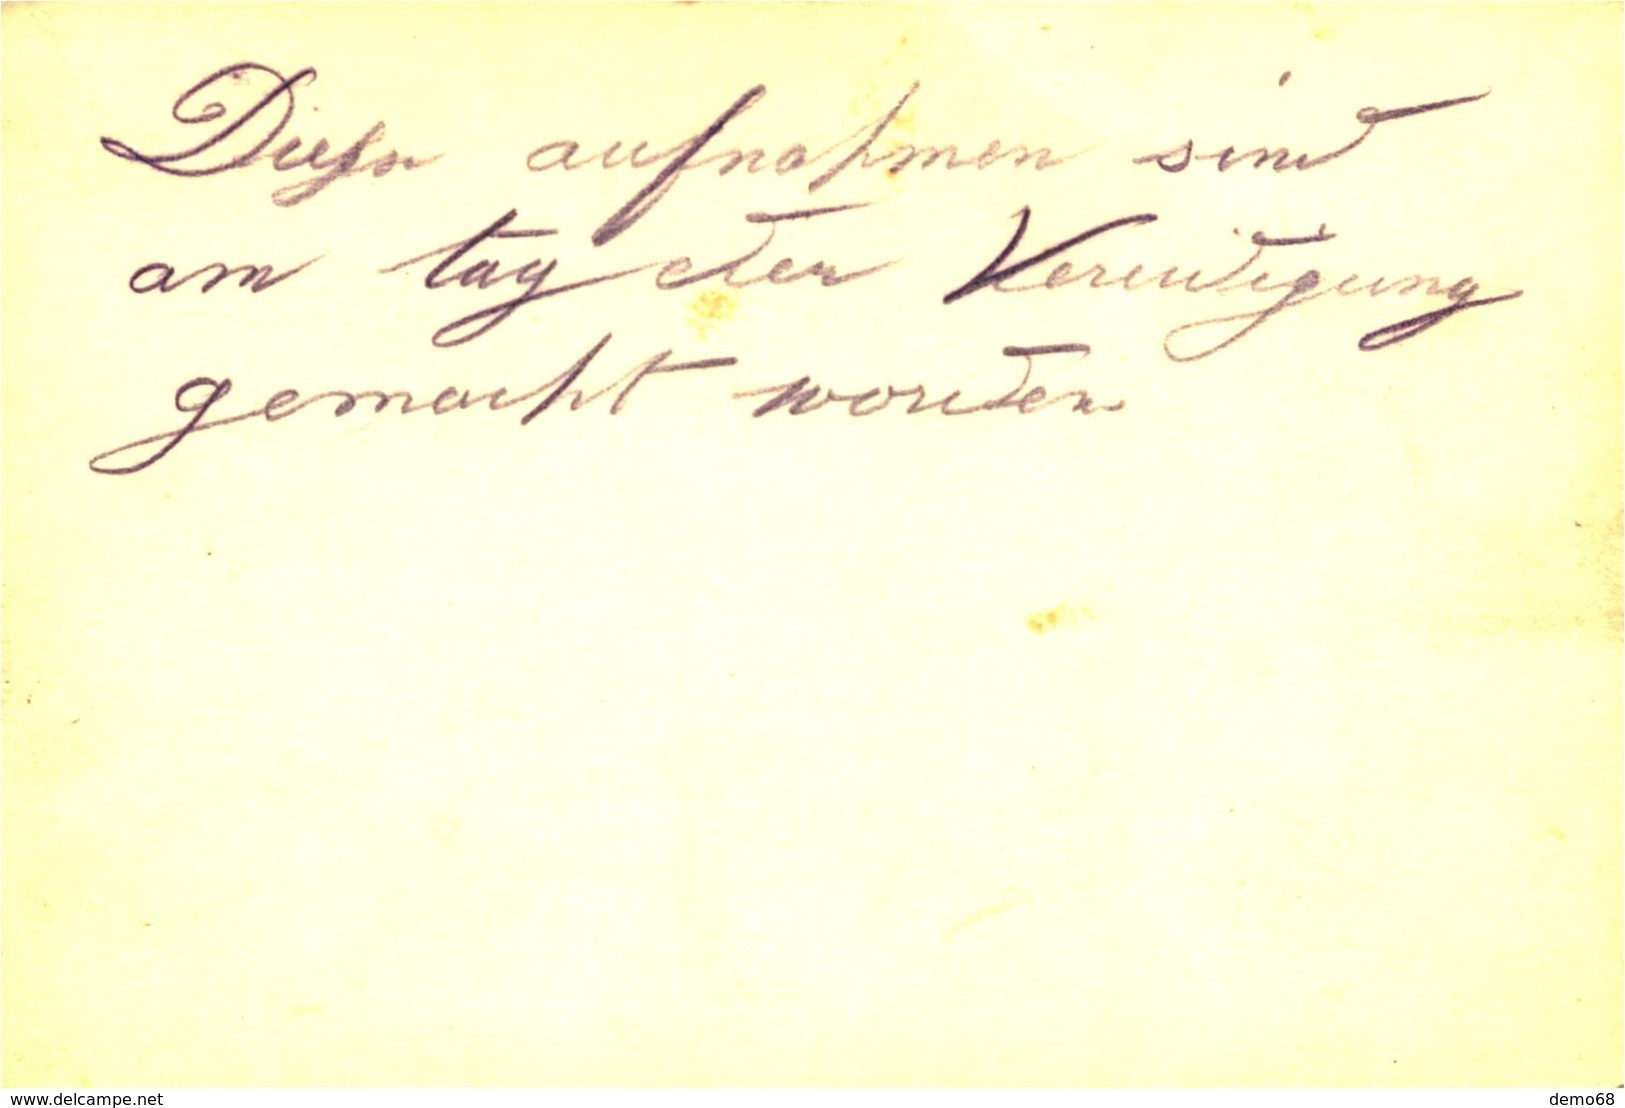 Diese aufnahmen sind
am tag der Vereidigung
gemacht worden
www.delcampe.net
demo68